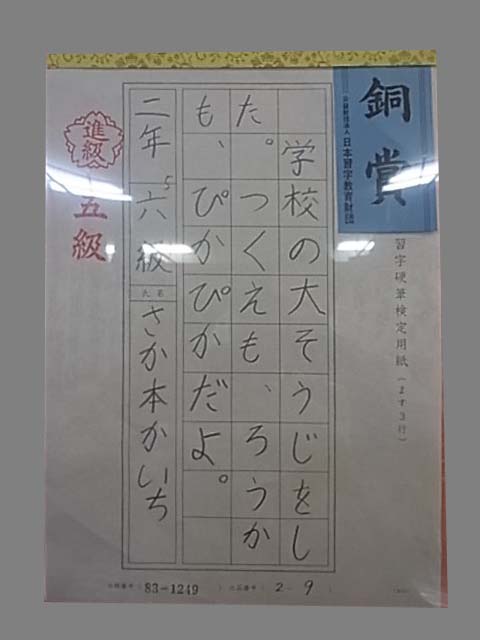 銅賞
公益財団法人 日本習字教育財団
習字硬筆検定用紙(ます3行)
学校の大そうじをし
た。つくえも、ろうか
も、ぴかぴかだよ。
二年 六級
氏名
さか本かいち
進級
五級
83-1249
2-9